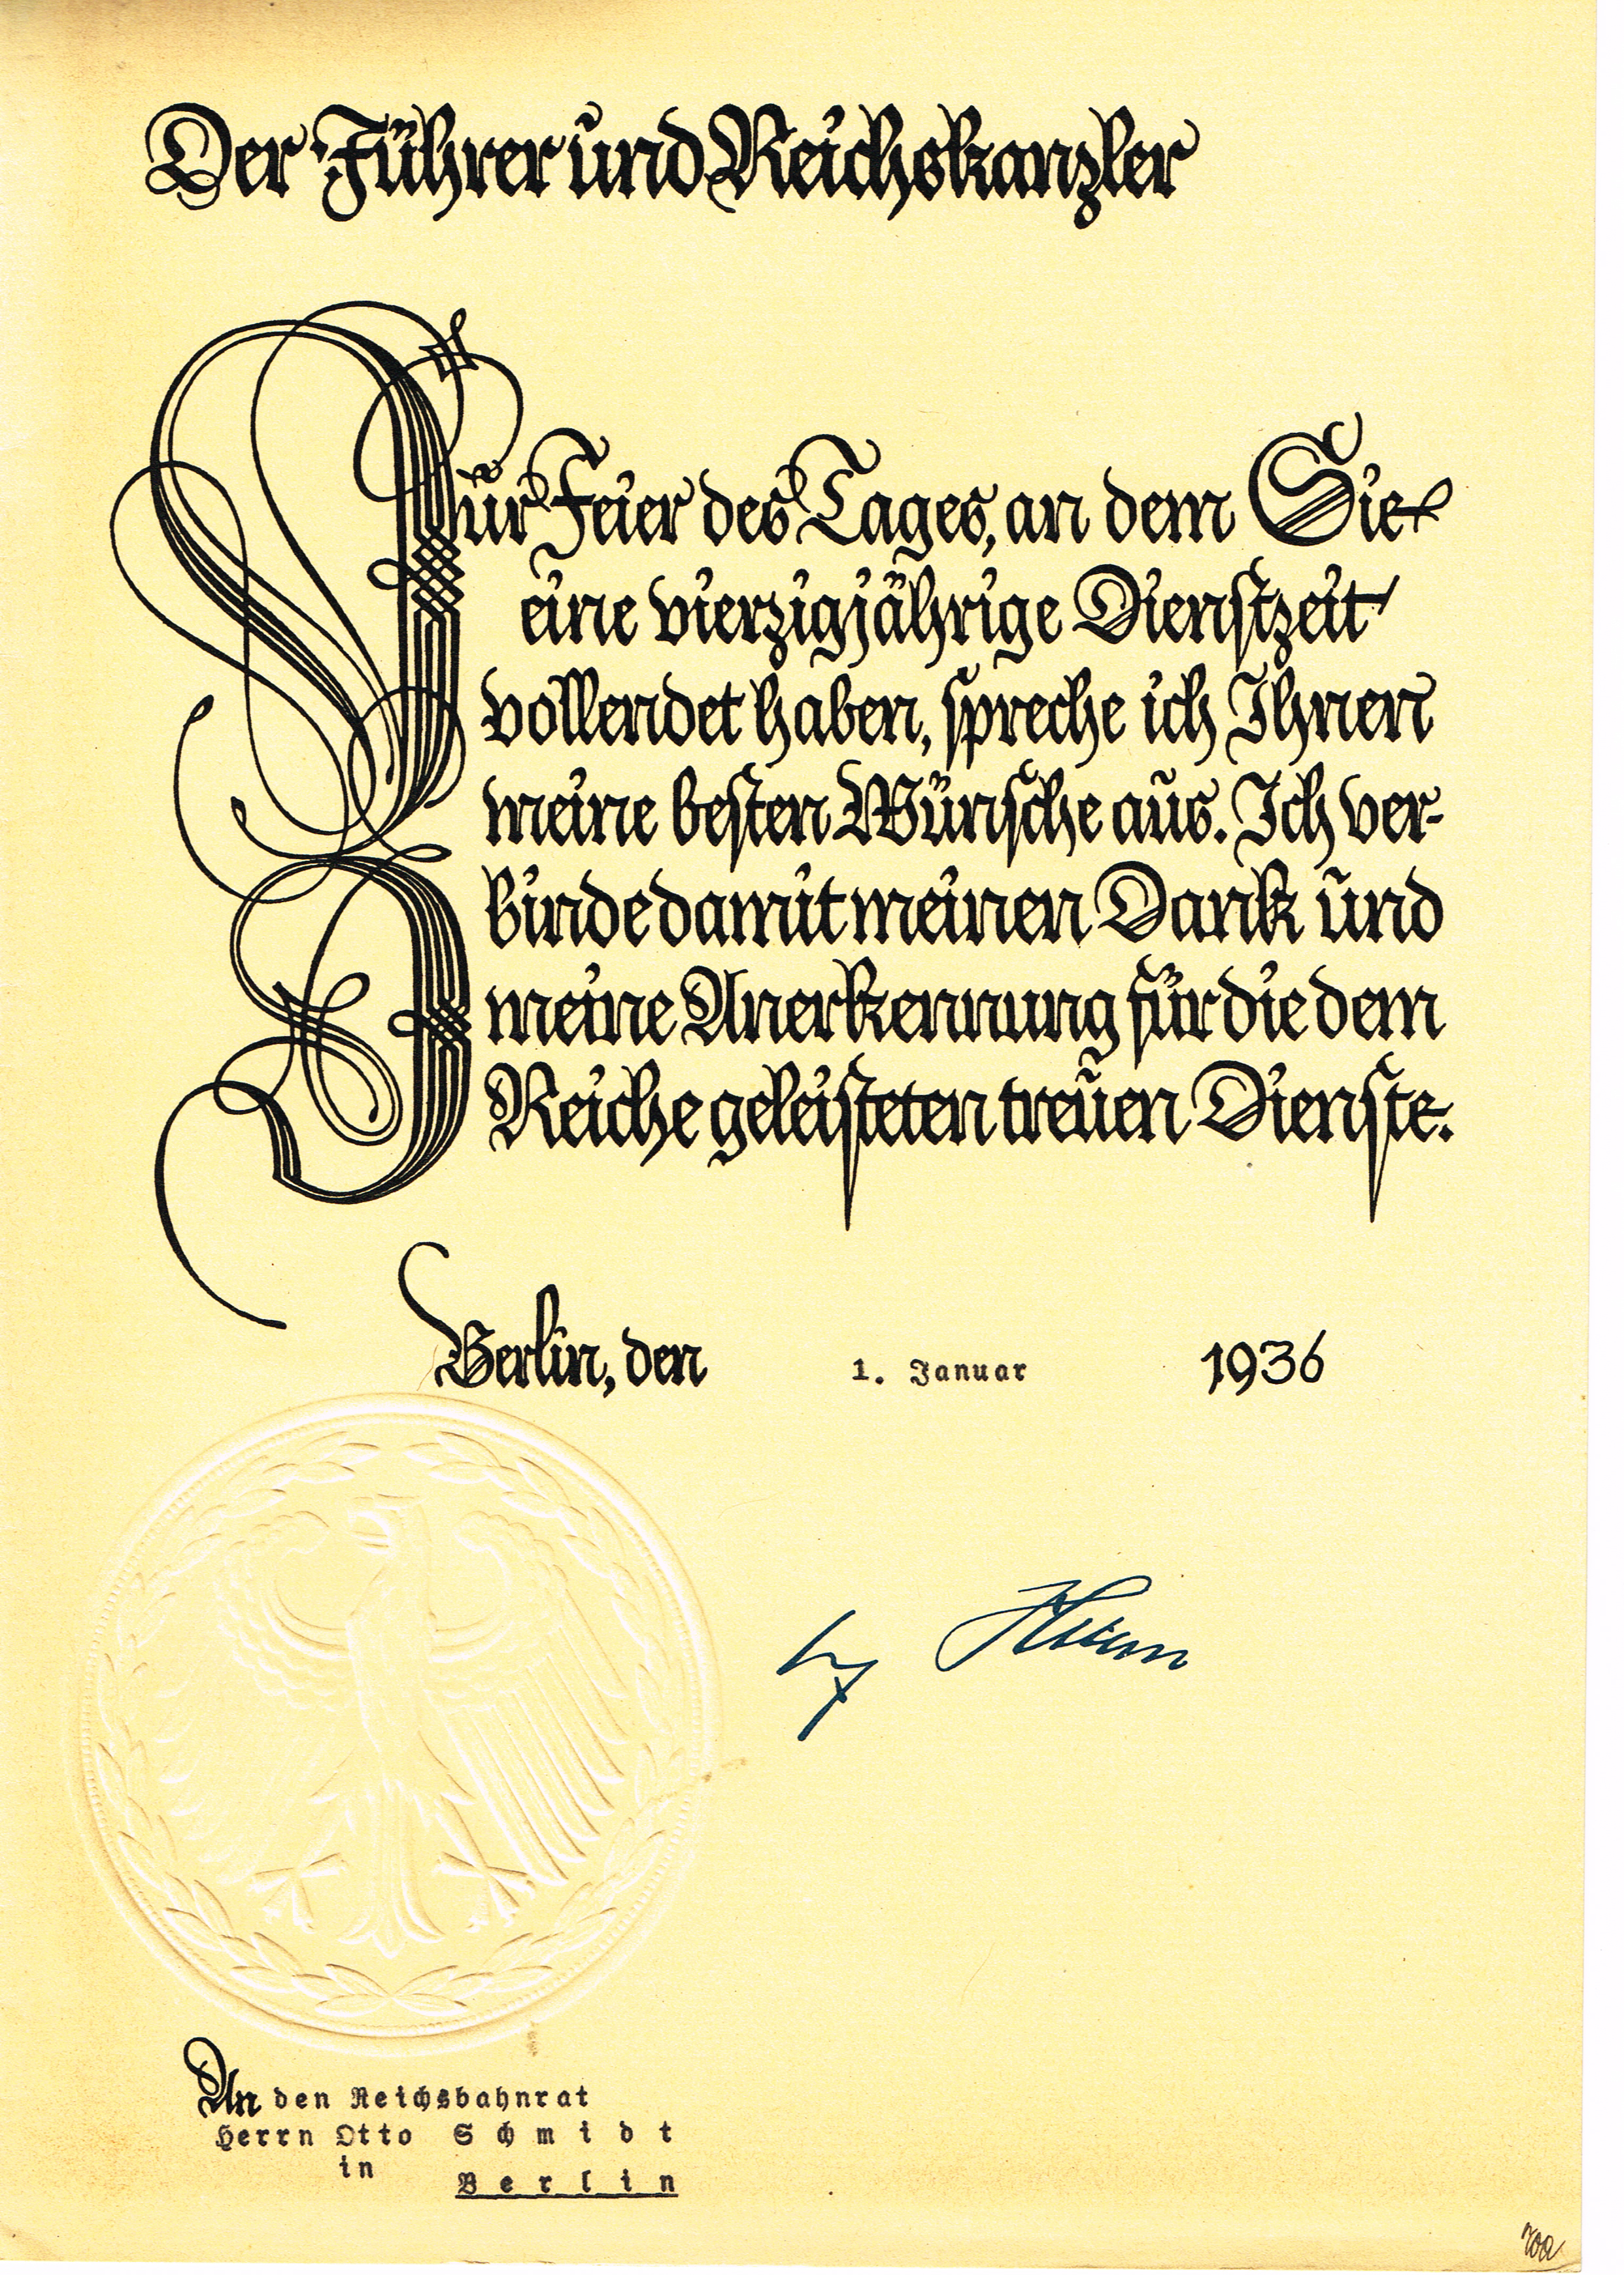 Der Führer und Reichskanzler
Zur Feier des Tages, an dem Sie
eine vierzigjährige Dienstzeit
vollendet haben, spreche ich Ihnen
meine besten Wünsche aus. Ich ver-
binde damit meinen Dank und
meine Anerkennung für die dem
Reiche geleisteten treuen Dienste.
Berlin, den 1. Januar 1936
An den Reichsbahnrat
Herrn Otto Schmidt
in
Berlin